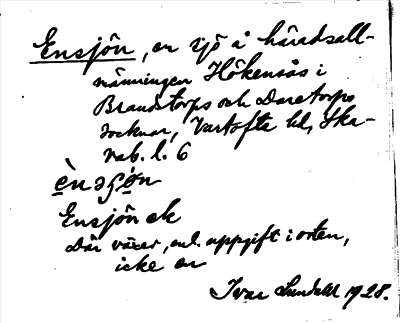 Ensjön, en sjö å häradsall-
männingen Hökensås i
Brandstorps och Daretorps
socknar, Vartofta hd, Ska-
rab. l. 6
Ensjön ek
Där växer, enl. uppgift i orten,
icke en
Ivar Lundahl 1928.